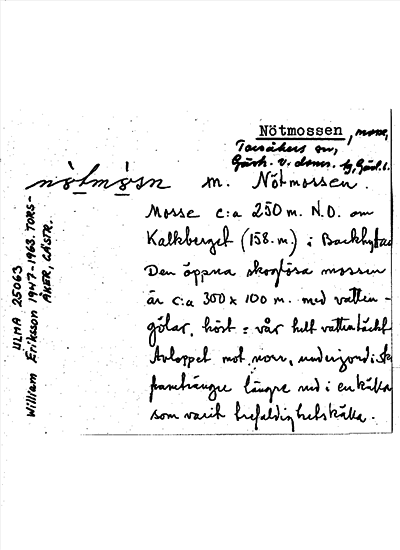 Nötmossen, mosse,
Torsåkers sn,
Gästr. v. doms. tg, Gävl. l.
nötmosn m. Nötmossen.
Mosse c:a 250 m. N.O. om
Kalkberget (158. m) i Backhyttan
Den öppna skoglösa mossen
är c:a 300 x 100 m. med vatten-
gölar, höst = vår helt vattentäckt
Avloppet mot norr, underjordisk
framtränger längre ned i en källa
som varit trefaldighetskälla.
ULMA 25063
William Eriksson 1947-1963. TORS-
ÅKER, GÄSTR.